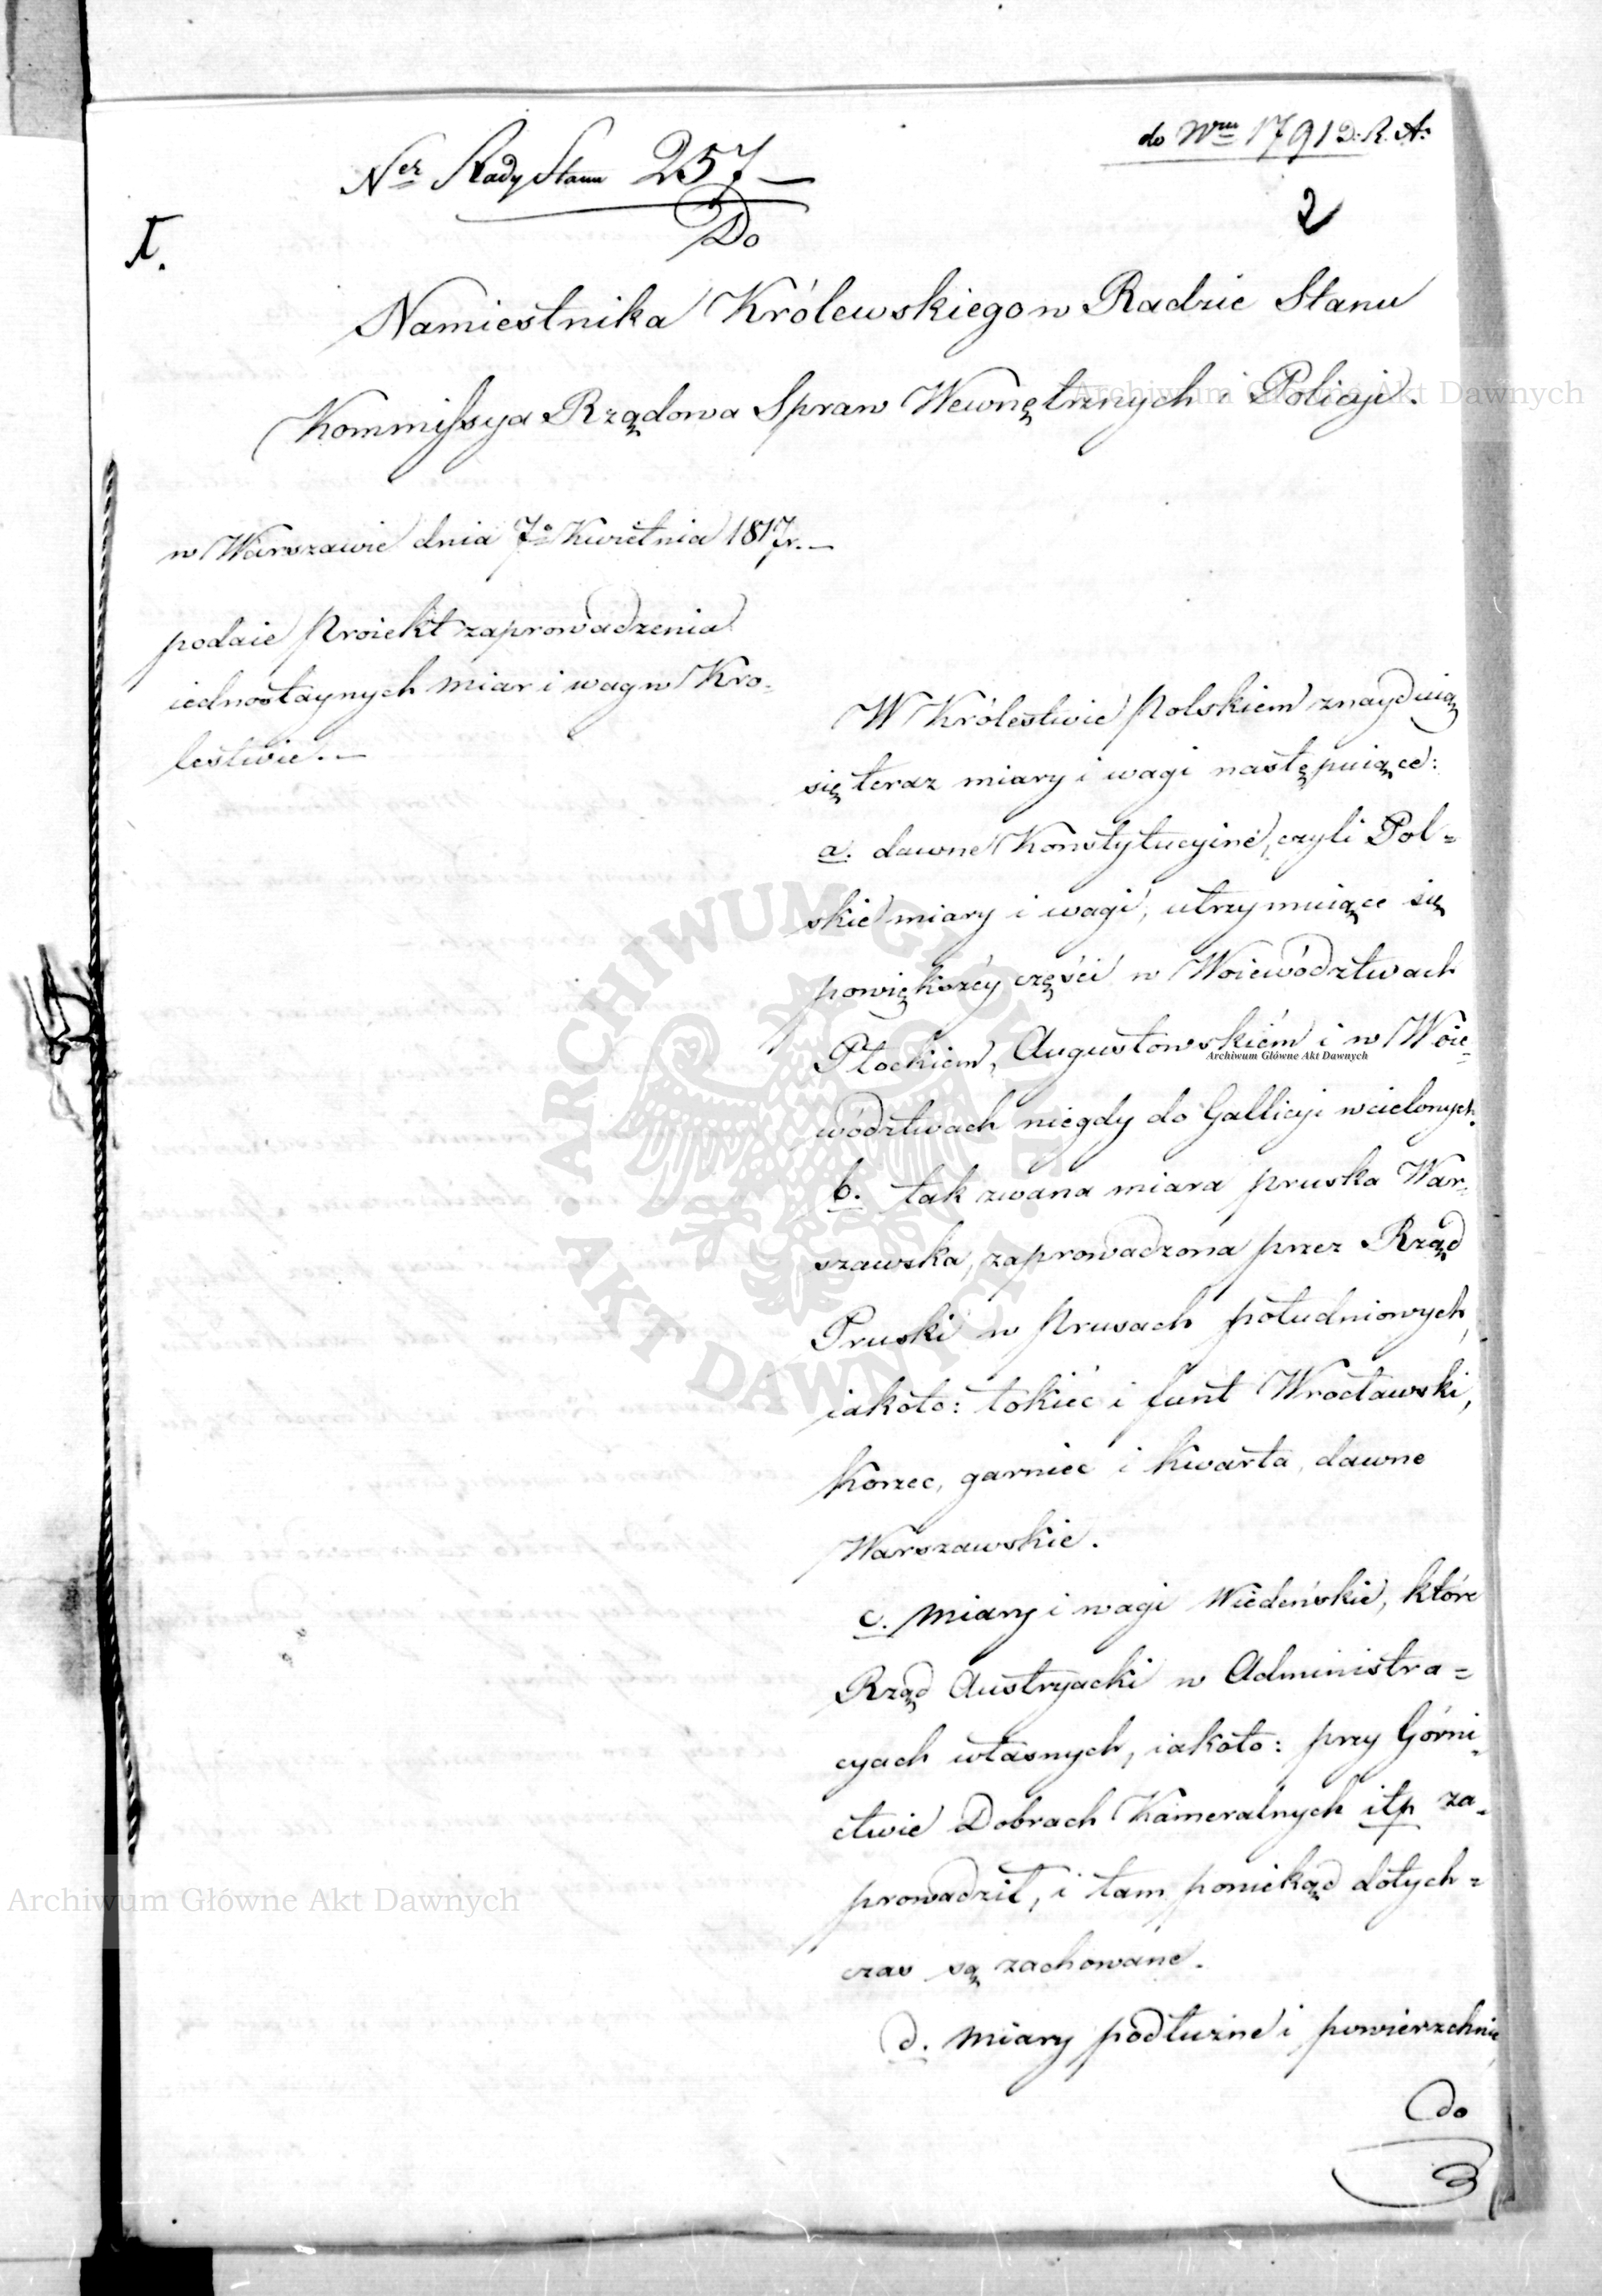 do Nru 1791 D. R. A.
Ner Rady Stanu 257
2
I.
Do
Namiestnika Królewskiego w Radzie Stanu
Kommissya Rządowa Spraw Wewnętrznych i Policji.
w Warszawie dnia 7o Kwietnia 1817 r.
podaie Proiekt zaprowadzenia
iednostaynych miar i wag w Kro=
lestwie.
W Królestwie Polskiem znayduią
się teraz miary i wagi następuiące:
a. dawne Konstytucyine, czyli Pol=
skie miary i wagi, utrzymuiące się
powiększéy części w Woiewództwach
Płockiem, Augustowskiém i w Woie=
wództwach niegdy do Gallicyi wcielonych.
b. tak zwana miara pruska War=
szawska, zaprowadzona przez Rząd
Pruski w Prusach południowych,
iakoto: łokieć i funt Wrocławski,
Korzec, garniec i kwarta, dawne
Warszawskie.
c. Miary i wagi Wiedeńskie, które
Rząd Austryacki w Administra=
cyach własnych, iakoto: przy Górni=
ctwie Dobrach Kameralnych itp za=
prowadził, i tam poniekąd dotych=
czas są zachowane.
d. Miary podłużne i powierzchnie
do
3
ARCHIWUM GŁÓWNE AKT DAWNYCH
Archiwum Główne Akt Dawnych
Archiwum Główne Akt Dawnych
Archiwum Główne Akt Dawnych